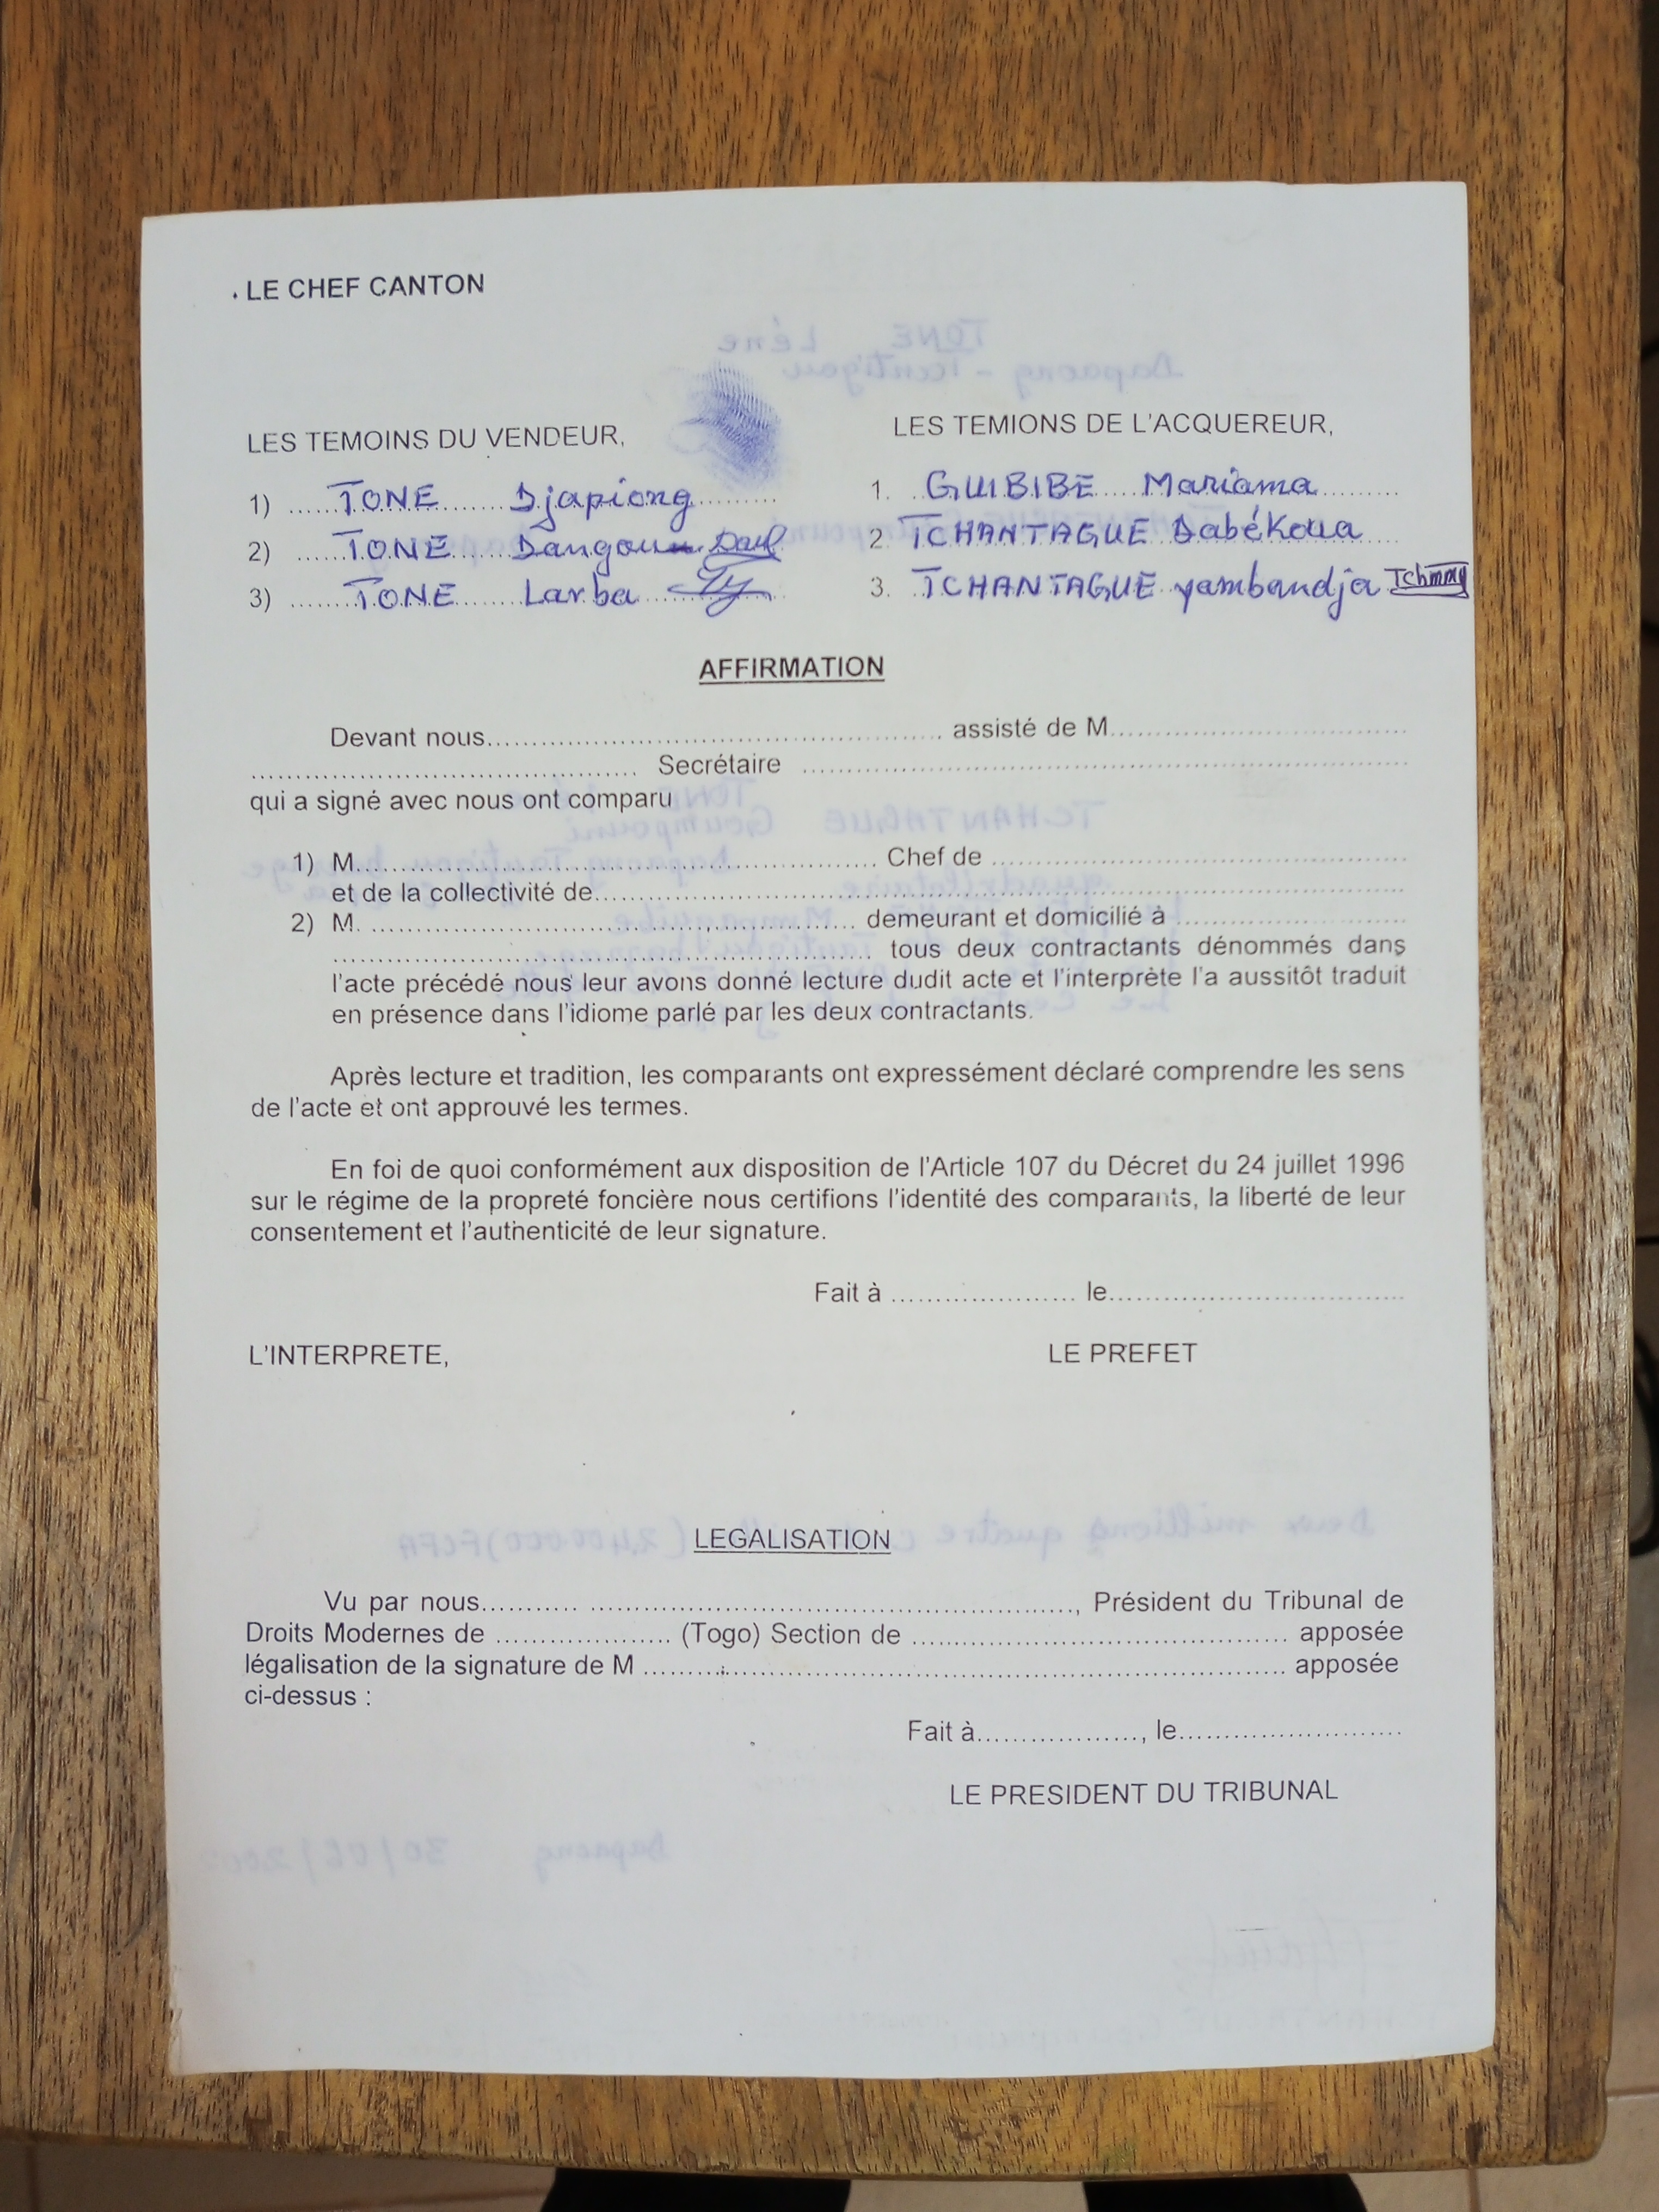 LE CHEF CANTON
LES TEMOINS DU VENDEUR,
1) ...... TONE ....... Djapiong ..........
2) ...... TONE ...... Dangou
3) ........ TONE ....... Larba
LES TEMIONS DE L'ACQUEREUR,
1. .. GUIBIBE .... Mariama ..........
2. TCHANTAGUE Dabékoua
3. .. TCHANTAGUE yambandja
AFFIRMATION
Devant nous.................................................... assisté de M....................................
............................................ Secrétaire ......................................................................
qui a signé avec nous ont comparu
1) M............................................................ Chef de ................................................
et de la collectivité de............................................................................................
2) M. ........................................................ demeurant et domicilié à ..........................
............................................................. tous deux contractants dénommés dans
l'acte précédé nous leur avons donné lecture dudit acte et l'interprète l'a aussitôt traduit
en présence dans l'idiome parlé par les deux contractants.
Après lecture et tradition, les comparants ont expressément déclaré comprendre les sens
de l'acte et ont approuvé les termes.
En foi de quoi conformément aux disposition de l'Article 107 du Décret du 24 juillet 1996
sur le régime de la propreté foncière nous certifions l'identité des comparants, la liberté de leur
consentement et l'authenticité de leur signature.
Fait à ..................... le..................................
L'INTERPRETE,
LE PREFET
LEGALISATION
Vu par nous........... ........................................................, Président du Tribunal de
Droits Modernes de .................... (Togo) Section de ........................................... apposée
légalisation de la signature de M ......................................................................... apposée
ci-dessus :
Fait à..................., le.........................
LE PRESIDENT DU TRIBUNAL